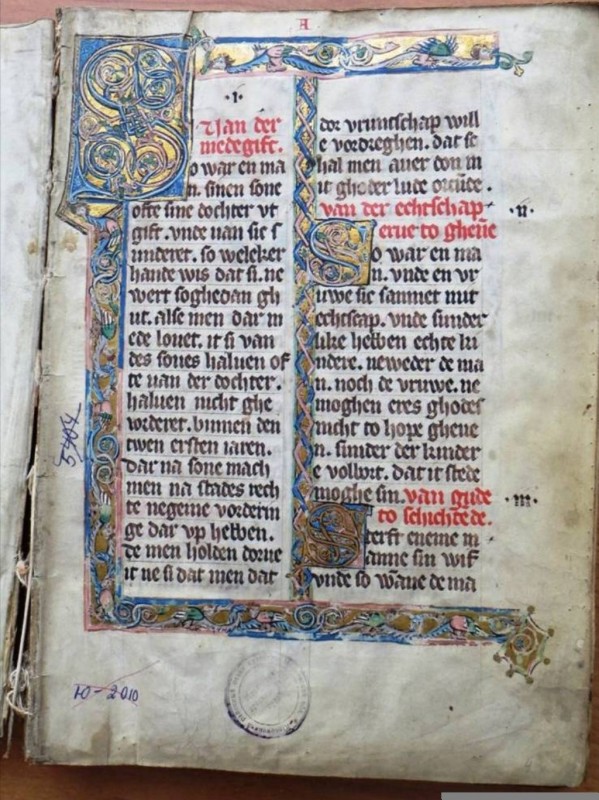 A
·i·
Van der
medegift.
So war en ma
n. sinen sone
ofte sine dochter vt
gift. vnde uan sic s
underet. so weleker
hande wis dat si. ne
wert soghedan gh
ut. alse men dar m
ede louet. it si van
des sones haluen of
te uan der dochter.
haluen nicht ghe
vorderet. binnen den
twen ersten iaren.
dar na sone mach
men na stades rech
te negeine vorderin
ge dar vp hebben.
de men holden dorue
it ne si dat men dat
dor vruntschap will
e vordreghen. dat se
hal men auer don m
it ghoder lude orcůde.
van der echtschap
·ii·
erue to gheuē
So war en ma
n. vnde en vr
uwe sic sammet mit
echtscap. vnde sunder
like hebben echte ki
ndere. neweder de ma
n. noch de vruwe. ne
moghen eres ghodes
nicht to hope gheue
n. sunder der kinder
e vollvrt. dat it stede
moghe sin. van gude
·iii·
to schichtēde.
Sterft eneme m
anne sin wif
vnde so wane de ma
5464
Ю-2010